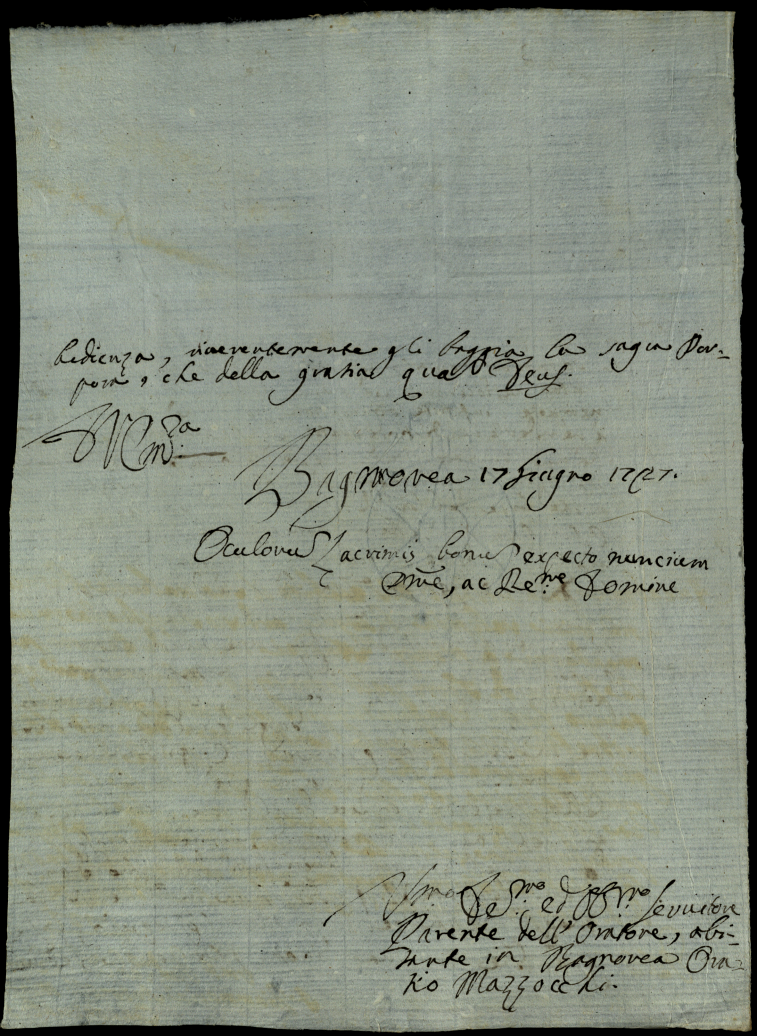 bedienza, riverentemente gli baggia la sagra Por-
pora, che della gratia qua Deus.
V Em.za
Bagnorea 17 Giugno 1727.
Oculorus Lacrimis bonus expecto nuncium
Eme, ac Re.me Domine
De.mo ed Obb.mo Servitore
Parente dell' Oratore, abi-
tante in Bagnorea Ora-
tio Mazzocchi.